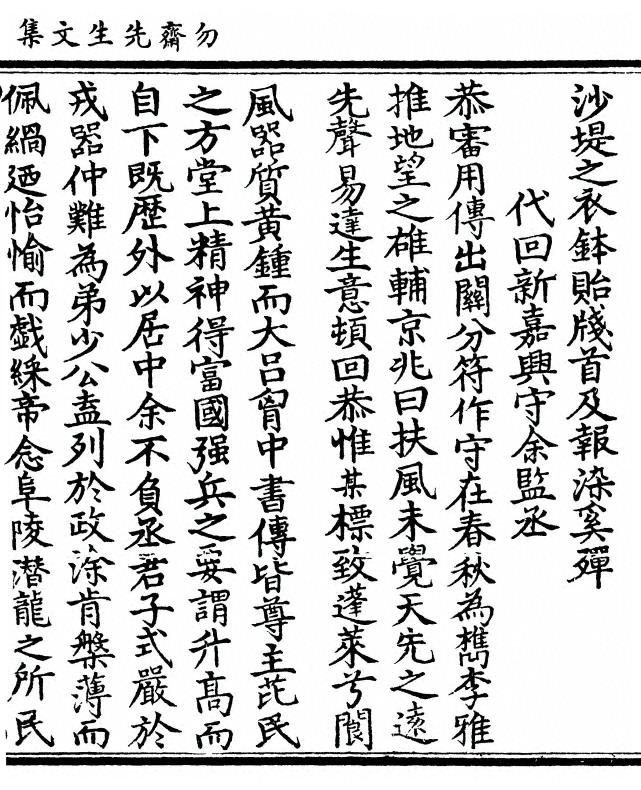 勿齋先生文集
沙堤之衣鉢貽牋首及報染奚殫
代回新嘉興守余監丞
恭審用傳出關分符作守在春秋為檇李雅
推地望之雄輔京兆曰扶風未覺天先之遠
先聲易達生意頓回恭惟某標致蓬萊兮閬
風器質黃鍾而大呂胷中書傳皆尊主芘民
之方堂上精神得富國强兵之要謂升高而
自下既歷外以居中余不負丞君子式嚴於
戎器仲難為弟少公盍列於政涂肯槃薄而
佩綱廼怡愉而戲綵帝念阜陵潛龍之所民